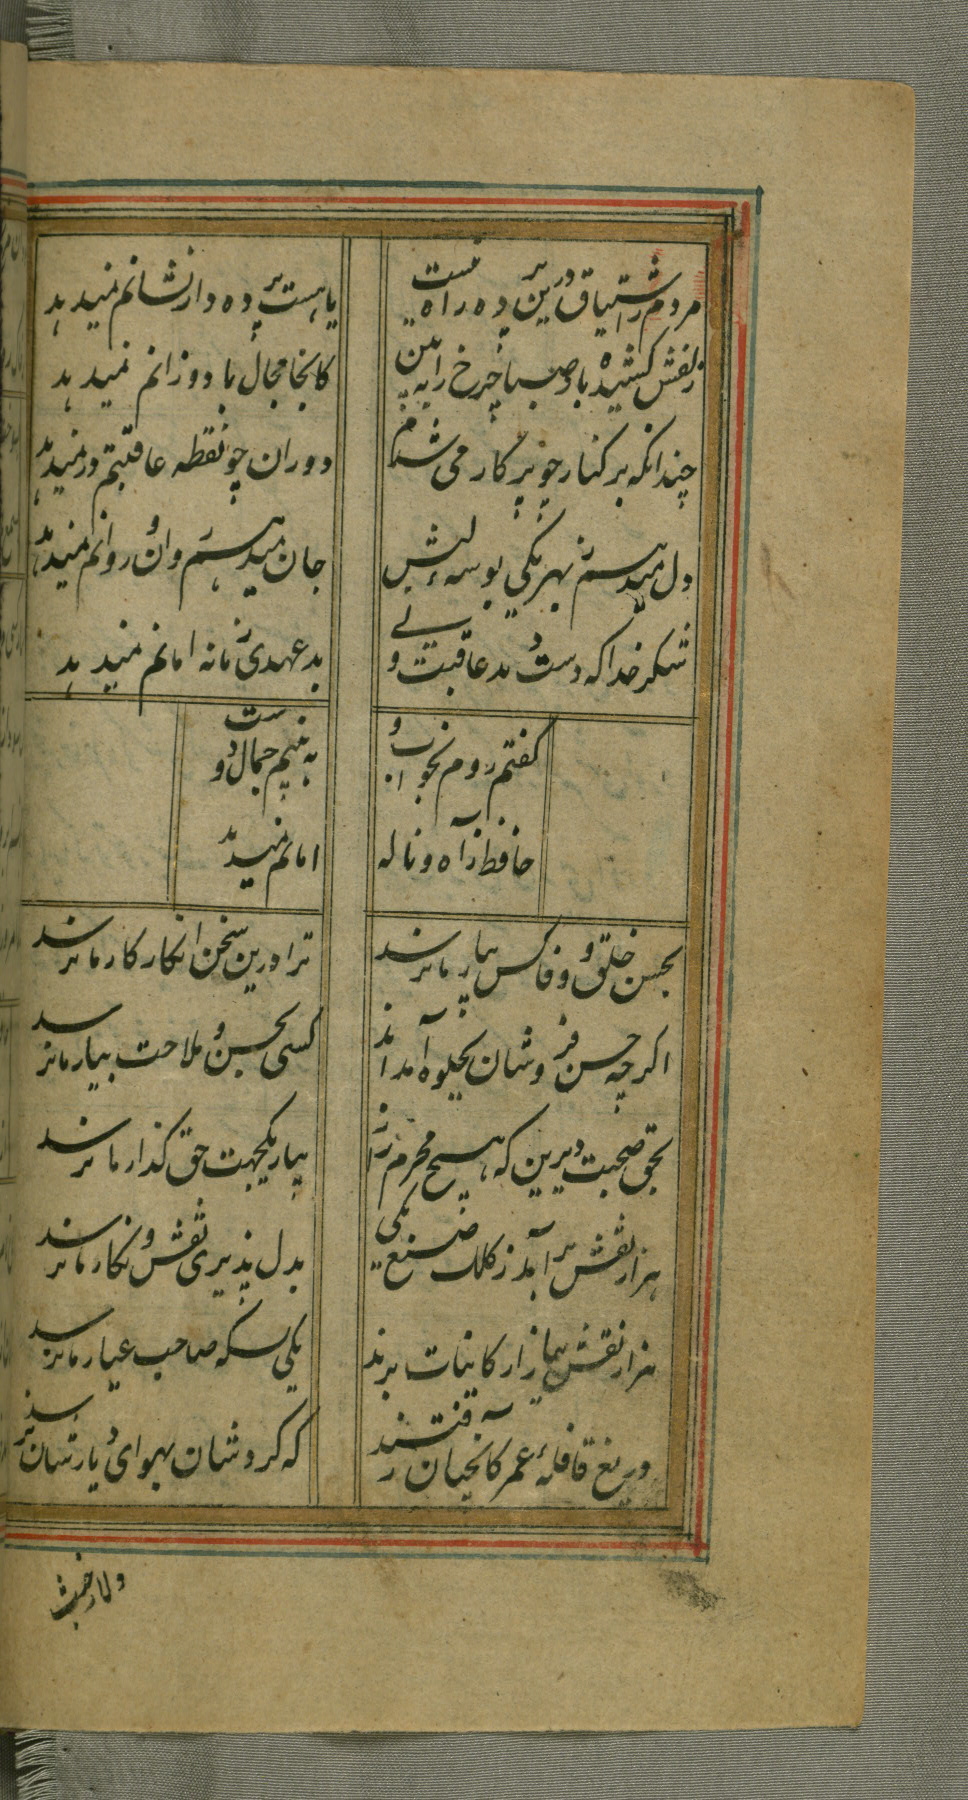 مردم ز اشتیاق درین پرده راه نیست
یا هست پرده دار نشانم نمیدهد
زلفش کشیده باد صبا چرخ را ببین
کانجا مجال باد وزانم نمیدهد
چندانکه بر کنار چو پرکار می شدم
دوران چو نقطه عاقبتم ره نمیدهد
دل میدهم ز بهر یکی بوسه لبش
جان میدهم و آن روانم نمیدهد
شکر خدا که دست دهد عاقبت ولی
بد عهدی زمانه امانم نمیدهد
کفتم روم بخواب و
به بینم جمال دوست
حافظ ز آه و ناله
امانم نمیدهد
بحسن خلق و وفا کس بیار ما نرسد
ترا درین سخن انکار کار ما نرسد
اکرچه حسن فروشان بجلوه آمده اند
کسی بحسن و ملاحت بیار ما نرسد
بحق صحبت دیرین که هیچ محرم راز
بیار یکجهت حق کذار ما نرسد
هزار نقش برآمد ز کلک صنع یکی
بدل پذیری نقش و نکار ما نرسد
هزار نقش ببازار کاینات برند
یکی بسکه صاحب عیار ما نرسد
دریغ قافلهٔ عمر کانچنان رفتند
که کردشان بهوای دیار ما نرسد
دلا ز خبث